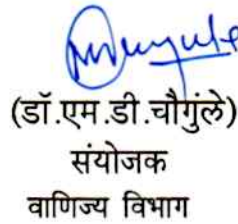 (डॉ.एम.डी.चौगुंले)
संयोजक
वाणिज्य विभाग